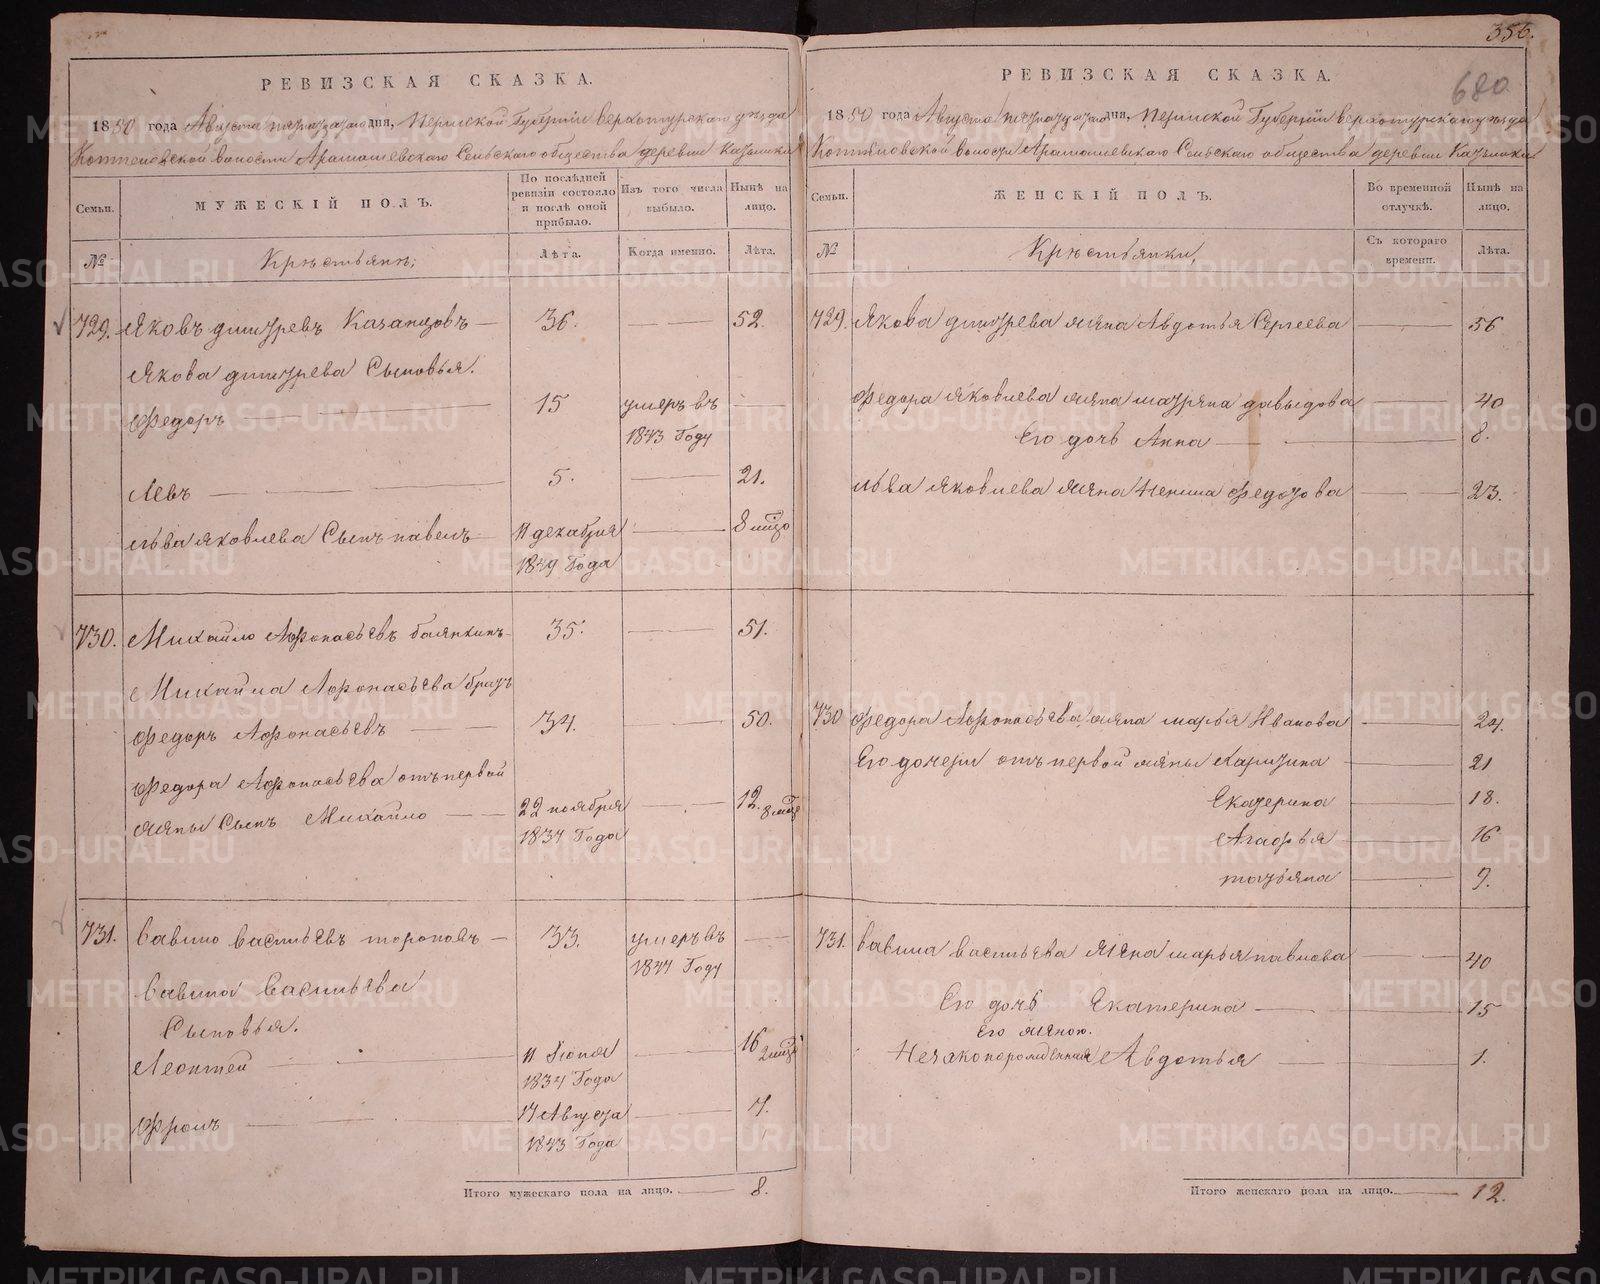 РЕВИЗСКАЯ СКАЗКА.
1850 года Августа дня, Пермской Губернiи Верхотурскаго уѣзда
волости Арамашевскаго Сельскаго общества деревни
Семьи.
МУЖЕСКIЙ ПОЛЪ.
По послѣдней ревизiи состояло и послѣ оной прибыло.
Изъ того числа выбыло.
Нынѣ на лицо.
№
Крестьяне;
Лѣта.
Когда именно.
Лѣта.
729. Яковъ Дмитревъ Казанцовъ 36. 52.
Якова Дмитрева Сыновья.
Федоръ 15 умеръ въ
1843 Году
Левъ 5. 21.
Льва Яковлева Сынъ Павелъ 11 декабря 8 мцо
1849 Года
730. Михайло Афонасьевъ 35. 51.
Михайла Афонасьева братъ
Федоръ Афонасьевъ 34. 50.
Федора Афонасьева отъ первой
жены Сынъ Михайло 22 ноября 12. 8 мце
1837 Года
731. Вавило Васильевъ Тороповъ 33. умеръ въ
1847 Году
Вавила Васильева
Сыновья.
Леонтей 11 Iюня 16 2 мце
1834 Года
Фролъ 17 Августа 7.
1843 Года
Итого мужескаго пола на лицо. 8.
356.
680
РЕВИЗСКАЯ СКАЗКА.
1850 года Августа дня, Пермской Губернiи Верхотурскаго уѣзда
волости Арамашевскаго Сельскаго общества деревни
Семьи.
ЖЕНСКIЙ ПОЛЪ.
Во временной отлучкѣ.
Нынѣ на лицо.
№
Крестьянки,
Съ котораго времени.
Лѣта.
729. Якова Дмитрева жена Авдотья Сергеева 56
Федора Яковлева жена Матряна Давыдова 40
Его дочь Анна 8.
Льва Яковлева жена Ненила Федотова 23.
730 Федора Афонасьева жена Марья Иванова 24.
Его дочери отъ первой жены Харитина 21
Екатерина 18.
Агафья 16
Татьяна 9.
731. Вавила Васильева жена Марья Павлова 40
Его дочь Екатерина 15
Его женою.
Незаконорожденная Авдотья 1.
Итого женскаго пола на лицо. 12.
METRIKI.GASO-URAL.RU